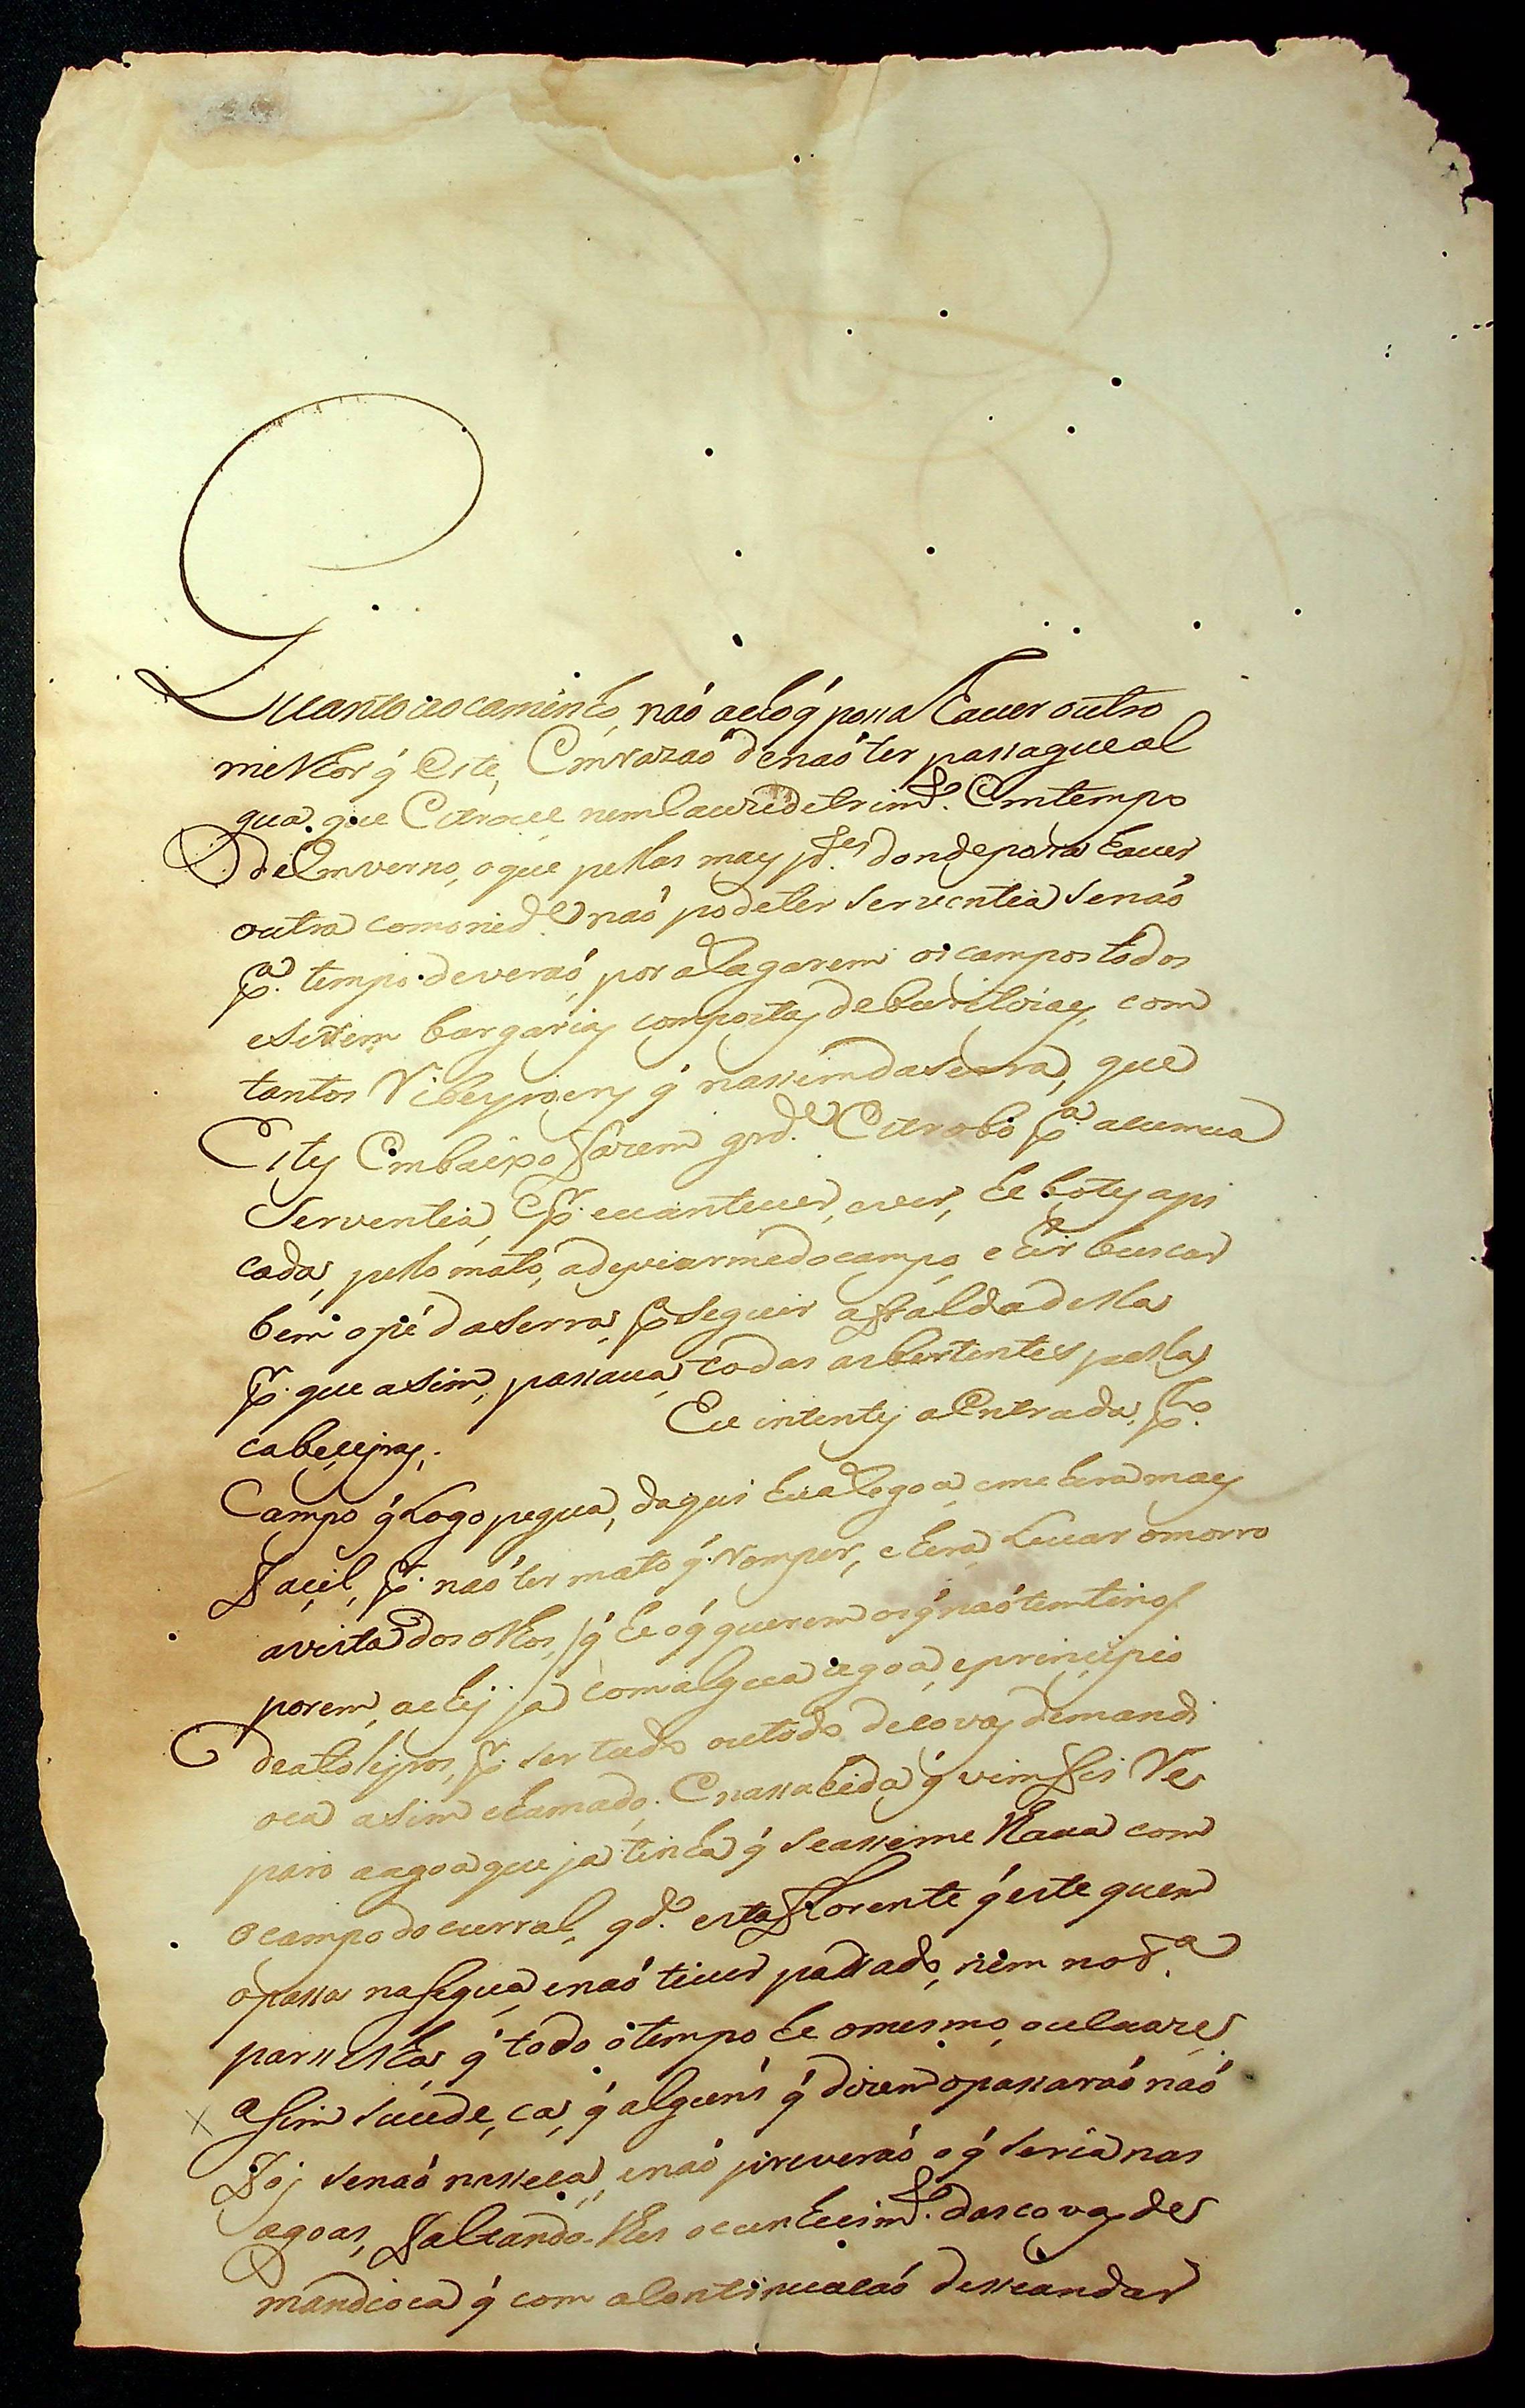 Quanto ao caminho, naõ acho q̃ possa hauer outro
melhor q̃ este, Em razaõ de naõ ter passague al
gua que Estroue nem lauze detrimto. Em tempo
de Emverno, o que pellas mays ptes donde possa hauer
outra comonide naõ pode ter serventia senaõ
pa. tempo de veraõ, por alagarem os campos todos
e serem bargarias compostas de buritizias, com
tantos Ribeyroens q̃ nassem da serra, que
Estes Embaixo fazem grde Estrobo pa. a eumua
Serventia, Epr. euanteuer, aver, he botey a pi
cada, pello mato, a desviarme do campo, e hir buscar
bem o pé da serra, p seguir a fralda della
pr. que asim, passaua todas as bertentes pellas
cabeçejras. Eu intentej a Entrada, po.
Campo q̃ logo pegua, daqui hua legoa, e me hera mays
façil, pr. naõ ter mato q̃ romper, e hera leuar o morro
a vista dos olhos, /q̃ he o q̃ querem os q̃ naõ tem tino/
porem achej ja com algua agoa, e prinçipio
de atolejros, pr. ser tudo outodo de covas de mandi
oca asim chamado. E nassahida q̃ vim fis Re
paro aagoa que ja tinha q̃ seasseme lhaua com
o campo do curral, qdo. esta florente q̃ este quem
o passa nasequa, e naõ tiuer passado, nem noda
paresselhe q̃ todo o tempo he o mesmo, ouluares
asim suuede, ca, q̃ alguns q̃ dizem o passaraõ naõ
foj senaõ nasseca, e naõ preveraõ o q̃ seria nas
agoas, faltando-lhes o cunheçimto. das covas de
mandioca q̃ com a Continuacaõ desse andar